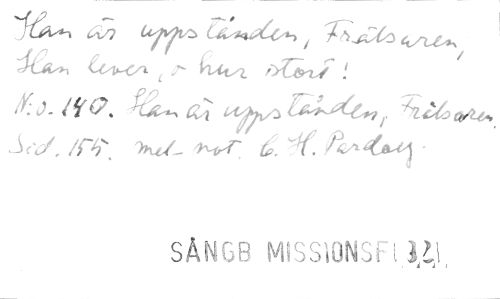 Han är uppstånden, Frälsaren,
Han lever, o hur stort!
N:o. 140. Han är uppstånden, Frälsaren.
Sid. 155. mel-not. C. H. Pardoey.
SÅNGB MISSIONSF 32